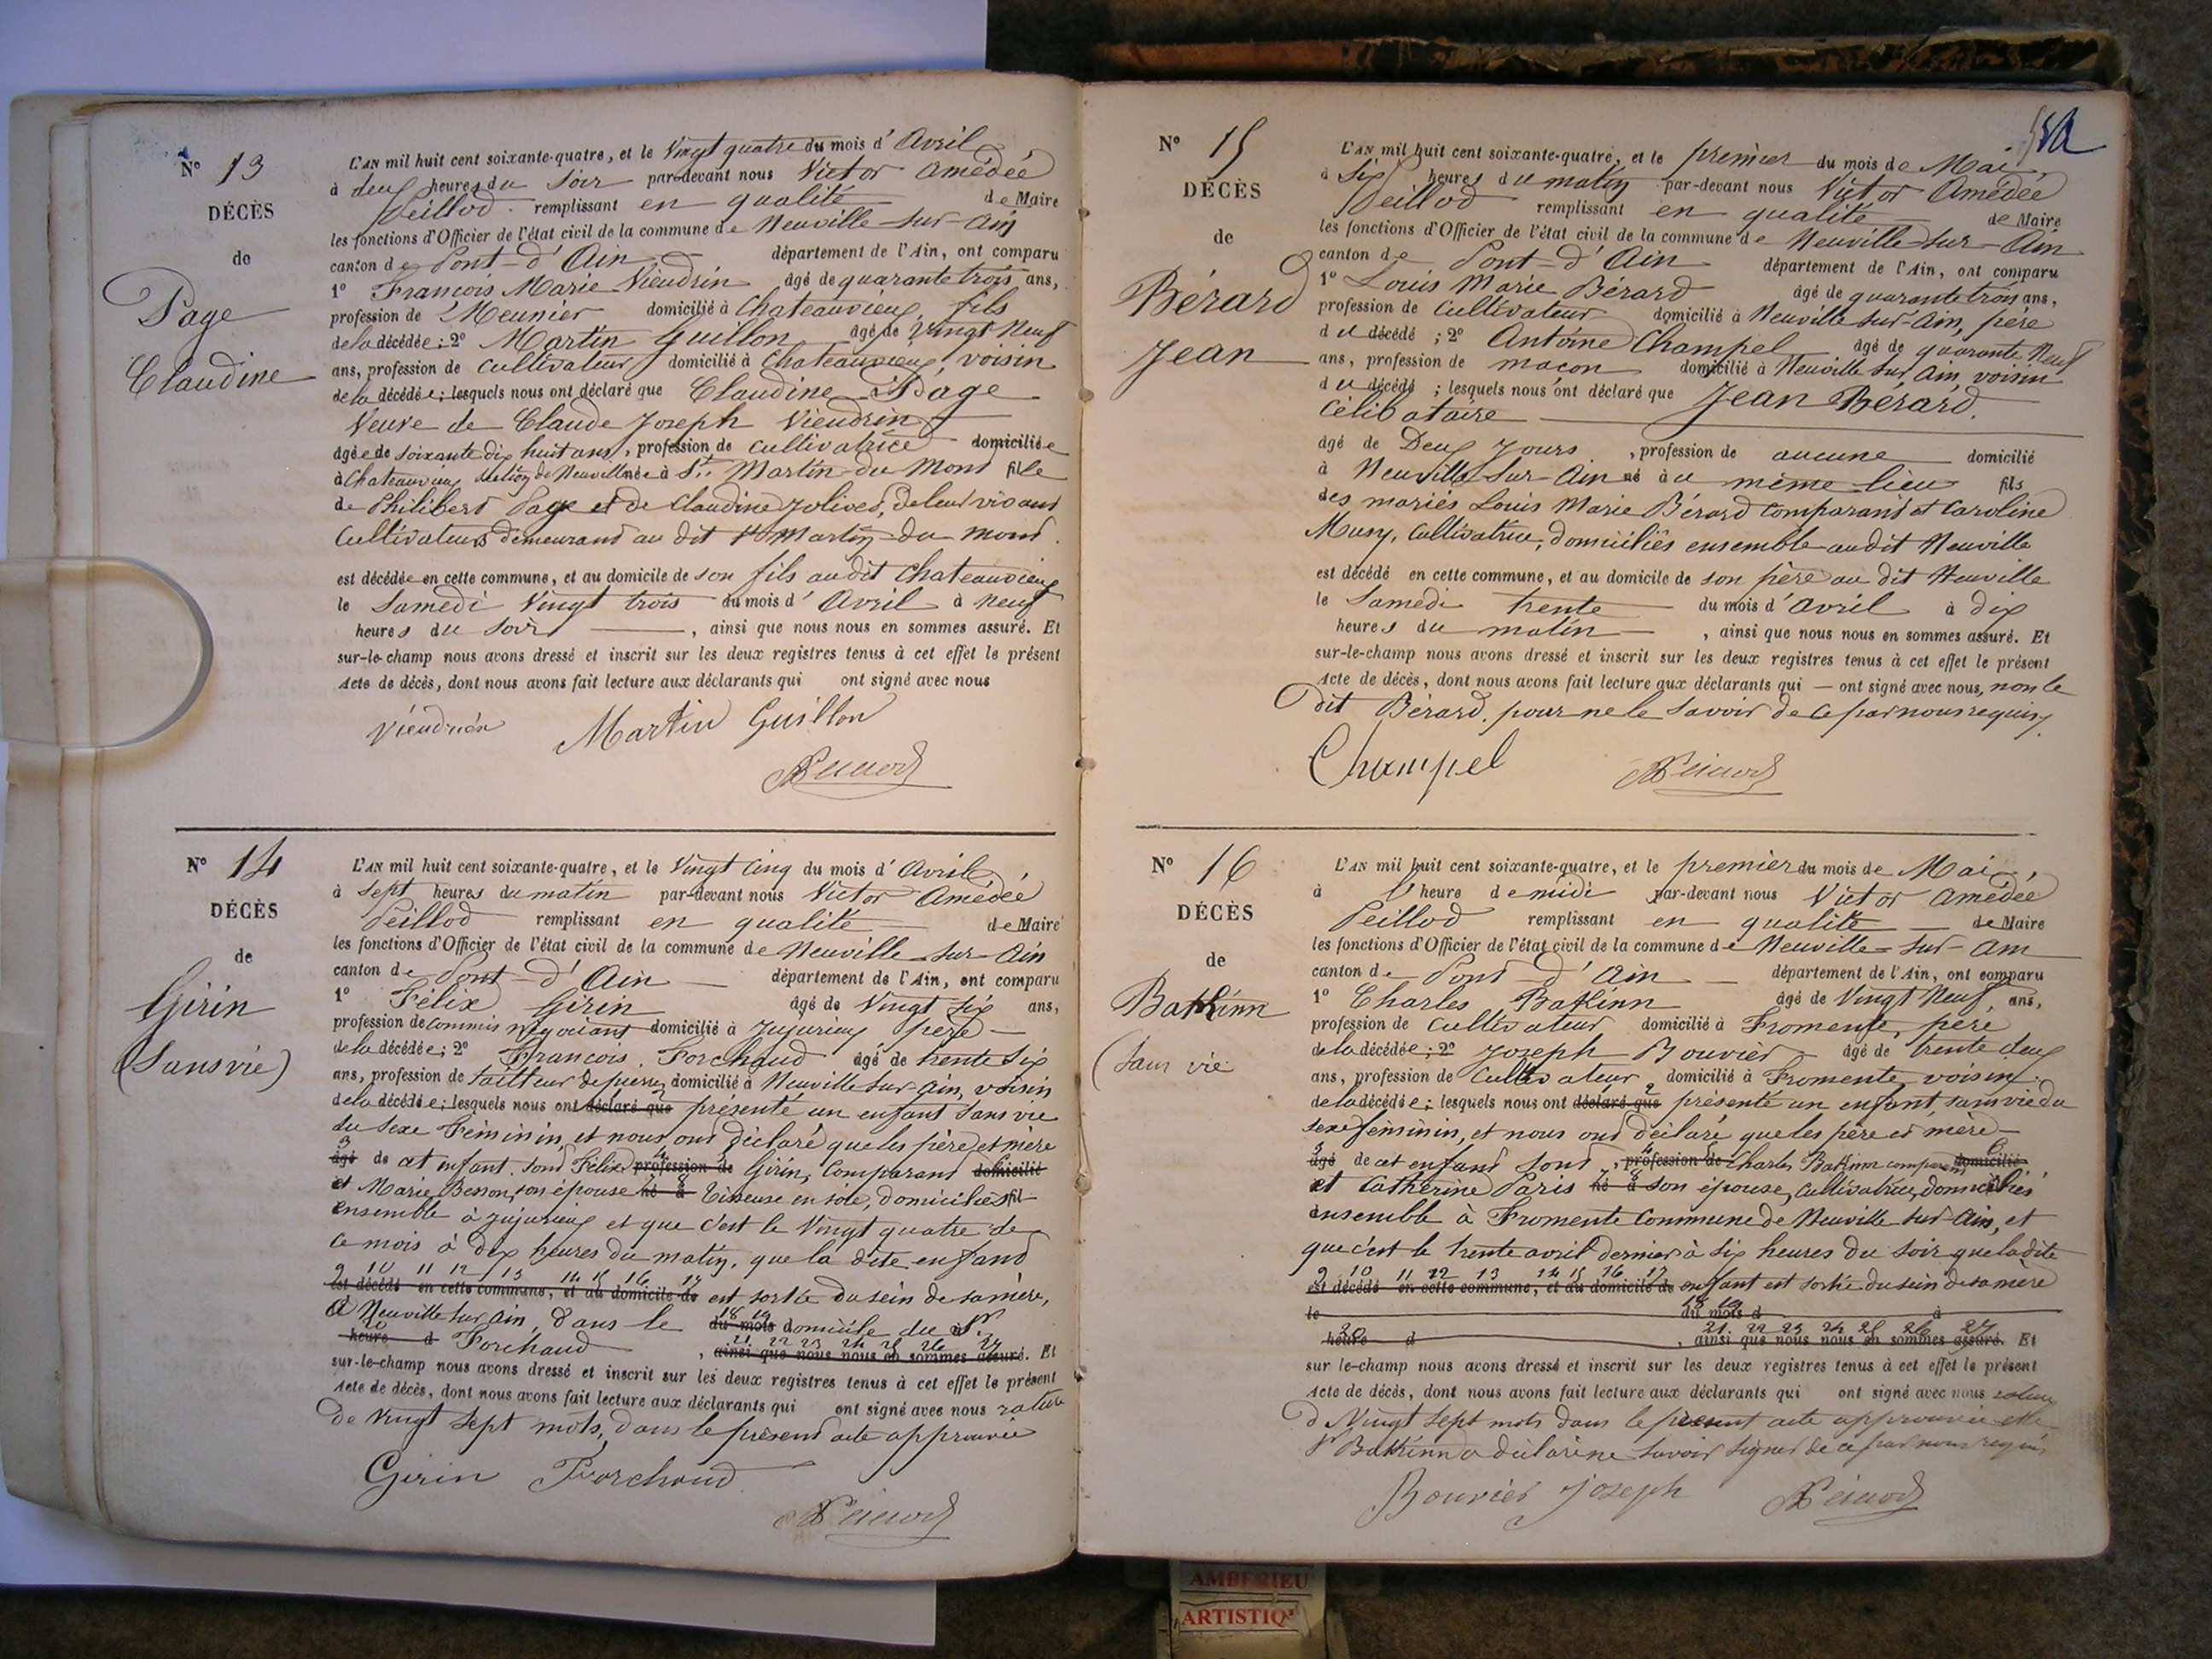 N° 13
DÉCÈS
de
Page
Claudine
L'AN mil huit cent soixante-quatre, et le Vingt quatre du mois d'Avril
à deux heures du Soir par-devant nous Victor Amédée
Peillod remplissant en qualité de Maire
les fonctions d'Officier de l'état civil de la commune de Neuville-sur-Ain
canton de Pont-d'Ain département de l'Ain, ont comparu
1° François Marie Vieudrin âgé de quarante trois ans,
profession de Meunier domicilié à Chateauvieux, fils
de la décédée; 2° Martin Guillon âgé de Vingt Neuf
ans, profession de cultivateur domicilié à Chateauvieux, voisin
de la décédée; lesquels nous ont déclaré que Claudine Page
Veuve de Claude Joseph Vieudrin
âgée de soixante dix huit ans, profession de cultivatrice domiciliée
à Chateauvieux Section de Neuville née à St. Martin du Mont fille
de Philibert Page et de Claudine Jolivet, de leur vivant
Cultivateurs demeurant au dit St Martin-du mont.
est décédée en cette commune, et au domicile de son fils audit Chateauvieux
le Samedi Vingt trois du mois d'Avril à neuf
heures du soir, ainsi que nous nous en sommes assuré. Et
sur-le-champ nous avons dressé et inscrit sur les deux registres tenus à cet effet le présent
Acte de décès, dont nous avons fait lecture aux déclarants qui ont signé avec nous
Vieudrin Martin Guillon
Peillod
N° 14
DÉCÈS
de
Girin
(Sans vie)
L'AN mil huit cent soixante-quatre, et le Vingt cinq du mois d'Avril,
à sept heures du matin par-devant nous Victor Amédée
Peillod remplissant en qualité de Maire
les fonctions d'Officier de l'état civil de la commune de Neuville-sur-Ain
canton de Pont-d'Ain département de l'Ain, ont comparu
1° Félix Girin âgé de Vingt six ans,
profession de commis négociant domicilié à Jujurieux père
de la décédée; 2° François Forchaud âgé de trente six
ans, profession de tailleur de pierres domicilié à Neuville sur-Ain, voisin
de la décédée; lesquels nous ont déclaré que présenté un enfant sans vie
du sexe Féminin, et nous ont déclaré que les père et mère
3 4
âgé de cet enfant sont Félix profession de Girin, Comparant domicilié
et Marie Besson, son épouse né à Tisseuse en soie, domiciliés fil
ensemble à Jujurieux et que c'est le Vingt quatre de
ce mois à dix heures du matin, que la dite enfant
9 10 11 12 13 14 15 16 17
est décédé en cette commune, et au domicile de est sortie du sein de sa mère,
à Neuville sur Ain, dans le du mois domicile du Sr
18 19
20 21 22 23 24 25 26 27
heure d Forchaud, ainsi que nous nous en sommes assuré. Et
sur-le-champ nous avons dressé et inscrit sur les deux registres tenus à cet effet le présent
Acte de décès, dont nous avons fait lecture aux déclarants qui ont signé avec nous rature
de Vingt sept mots, dans le présent acte approuvée
Girin Forchaud
Peillod
N° 15
DÉCÈS
de
Bérard
Jean
L'AN mil huit cent soixante-quatre, et le premier du mois de Mai,
à Six heures du matin par-devant nous Victor Amédée
Peillod remplissant en qualité de Maire
les fonctions d'Officier de l'état civil de la commune de Neuville-sur-Ain
canton de Pont-d'Ain département de l'Ain, ont comparu
1° Louis Marie Bérard âgé de quarante trois ans,
profession de Cultivateur domicilié à Neuville sur-Ain, père
du décédé; 2° Antoine Champel âgé de quarante Neuf
ans, profession de maçon domicilié à Neuville sur Ain, voisin
du décédé; lesquels nous ont déclaré que Jean Bérard,
célibataire
âgé de Deux Jours, profession de aucune domicilié
à Neuville-sur-Ain né au même lieu fils
des mariés Louis Marie Bérard comparant et Caroline
Musy, Cultivatrice, domiciliés ensemble audit Neuville
est décédé en cette commune, et au domicile de son père au dit Neuville
le Samedi trente du mois d'avril à dix
heures du matin, ainsi que nous nous en sommes assuré. Et
sur-le-champ nous avons dressé et inscrit sur les deux registres tenus à cet effet le présent
Acte de décès, dont nous avons fait lecture aux déclarants qui — ont signé avec nous, non le
dit Bérard, pour ne le savoir de ce par nous requis,
Champel Peillod
N° 16
DÉCÈS
de
Batkinn
(Sans vie
L'AN mil huit cent soixante-quatre, et le premier du mois de Mai,
à l'heure de midi par-devant nous Victor Amédée
Peillod remplissant en qualité de Maire
les fonctions d'Officier de l'état civil de la commune de Neuville-sur-Ain
canton de Pont-d'Ain département de l'Ain, ont comparu
1° Charles Batkinn âgé de Vingt Neuf ans,
profession de cultivateur domicilié à Fromente, père
de la décédée; 2° Joseph Bouvier âgé de trente deux
ans, profession de Cultivateur domicilié à Fromente, voisin
2
de la décédée; lesquels nous ont déclaré que présenté un enfant, sans vie du
sexe féminin, et nous ont déclaré que les père et mère
3 4 6
âgé de cet enfant sont, profession de Charles Batkinn comparant domicilié
et Catherine Paris né à son épouse, cultivatrice, domiciliés
ensemble à Fromente Commune de Neuville sur-Ain, et
que c'est le trente avril dernier à six heures du soir que la dite
9 10 11 12 13 14 15 16 17
est décédé en cette commune, et au domicile de enfant est sortie du sein de sa mère
18 19
le du mois d à
20 21 22 23 24 25 26 27
heure d, ainsi que nous nous en sommes assuré. Et
sur le-champ nous avons dressé et inscrit sur les deux registres tenus à cet effet le présent
Acte de décès, dont nous avons fait lecture aux déclarants qui ont signé avec nous rature
de Vingt sept mots dans le présent acte approuvée et le
Sr Batkinn a déclaré ne savoir signer de ce par nous requis
Bouvier Joseph Peillod
AMBERIEU
ARTISTIQ